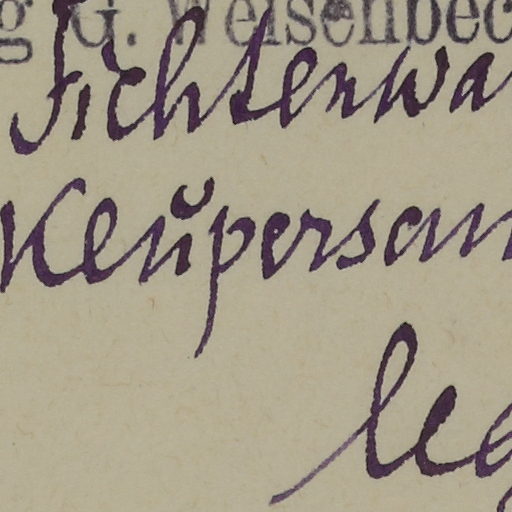 g G. Weisenbec
Fichtenwa
Keupersan
leg